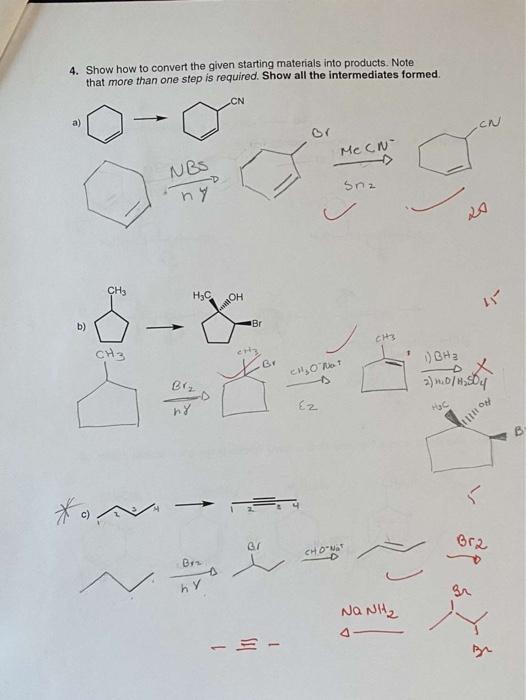 4. Show how to convert the given starting materials into products. Note
that more than one step is required. Show all the intermediates formed.
a)
CN
Br
CN
NBS
hγ
MeCN⁻
Sn2
20
15
CH₃
H₃C
OH
b)
Br
CH3
CH3
Br
CH₃O⁻Na⁺
E2
CH3
1) BH3
2) H2O/H2SO4
Br2
hγ
H3C
OH
B
5
c)
1 2 3 4
1 2 3 4
Br2
hγ
Br
CH O⁻Na⁺
Br2
NaNH2
Br
Br